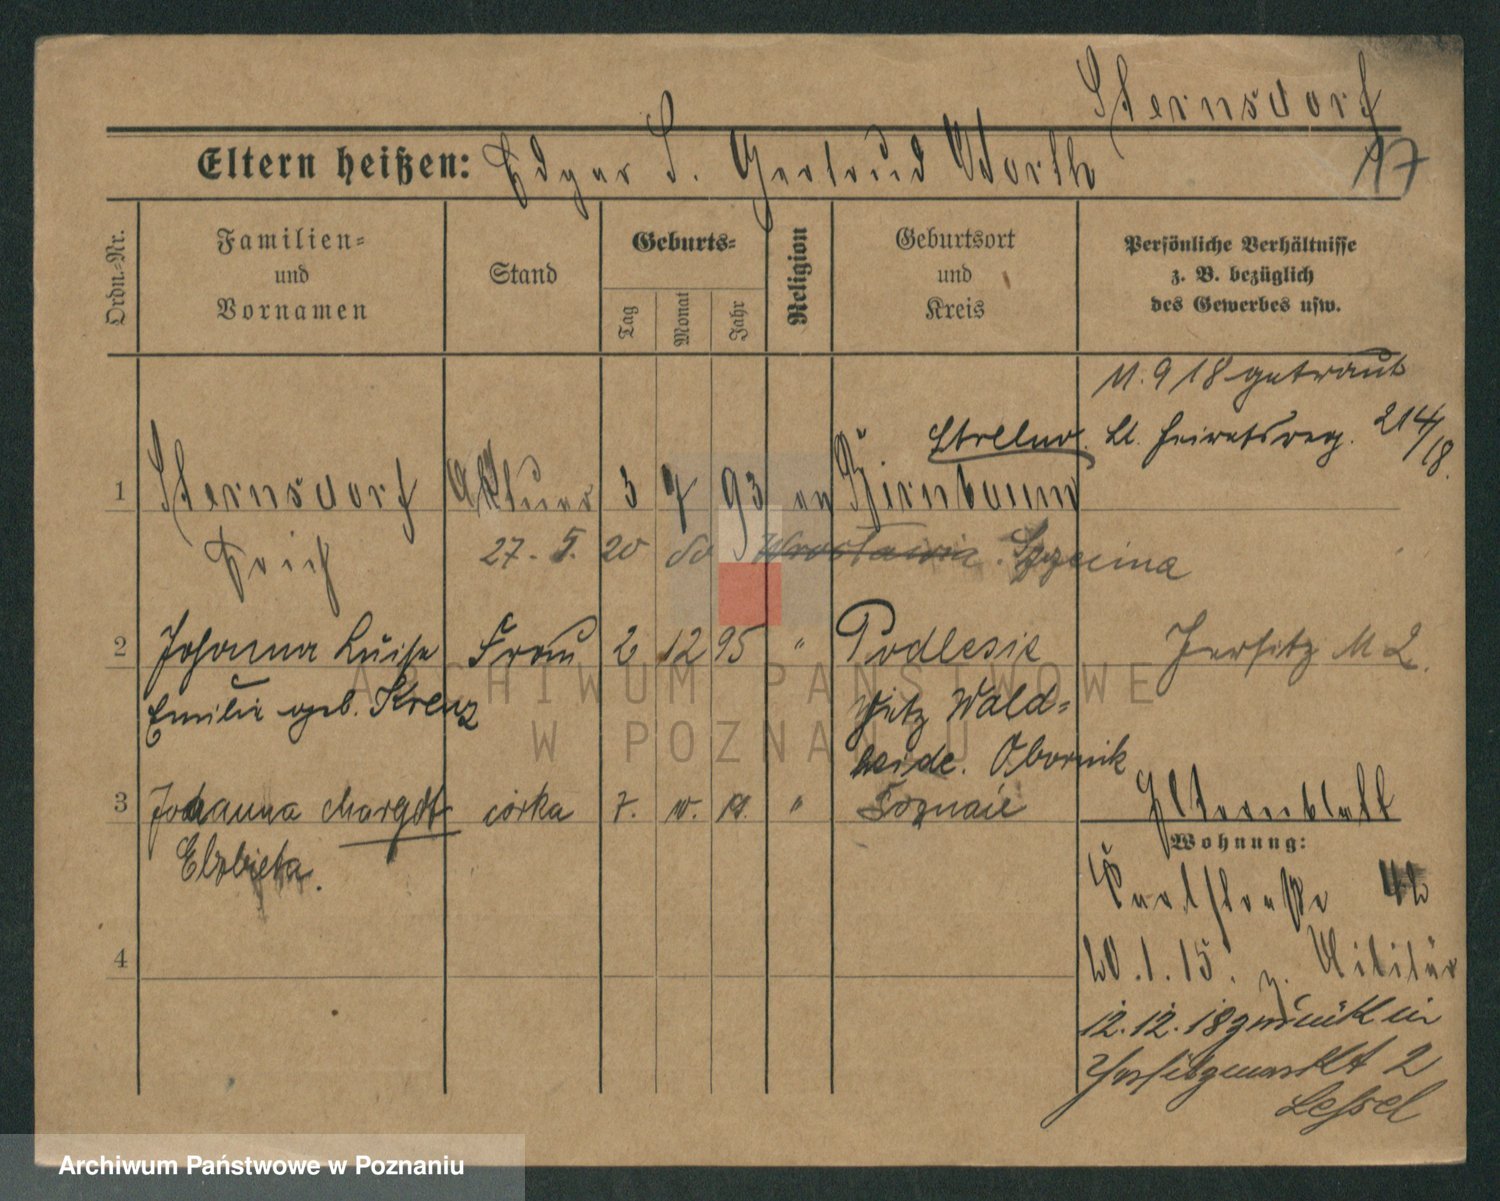 Sternsdorf
17
Eltern heißen: Edgar S. Gertrud Worth
Ordn.-Nr.
Familien- und Vornamen
Stand
Geburts-
Tag
Monat
Jahr
Religion
Geburtsort und Kreis
Persönliche Verhältnisse z. B. bezüglich des Gewerbes usw.
11. 9 18 getraut
lt. Heiratsreg. 214/18.
Strelno
1 Sternsdorf Aktuar 3 7 93 ev Birnbaum
Erich 27. 5. 20 do Wrocławia. Szczecina
2 Johanna Luise Frau 2 12 95 " Podlesie
Emilie geb. Krenz
jetzt Wald-
heide. Obornik
Jersitz M 2.
3 Johanna Margot córka 7. " Poznań
Elżbieta.
Elternblatt
Wohnung:
20. 1. 15. z. Militär
12. 12. 18 zurück in
Jersitzmarkt 2
Lessel
4
ARCHIWUM PAŃSTWOWE
W POZNANIU
Archiwum Państwowe w Poznaniu